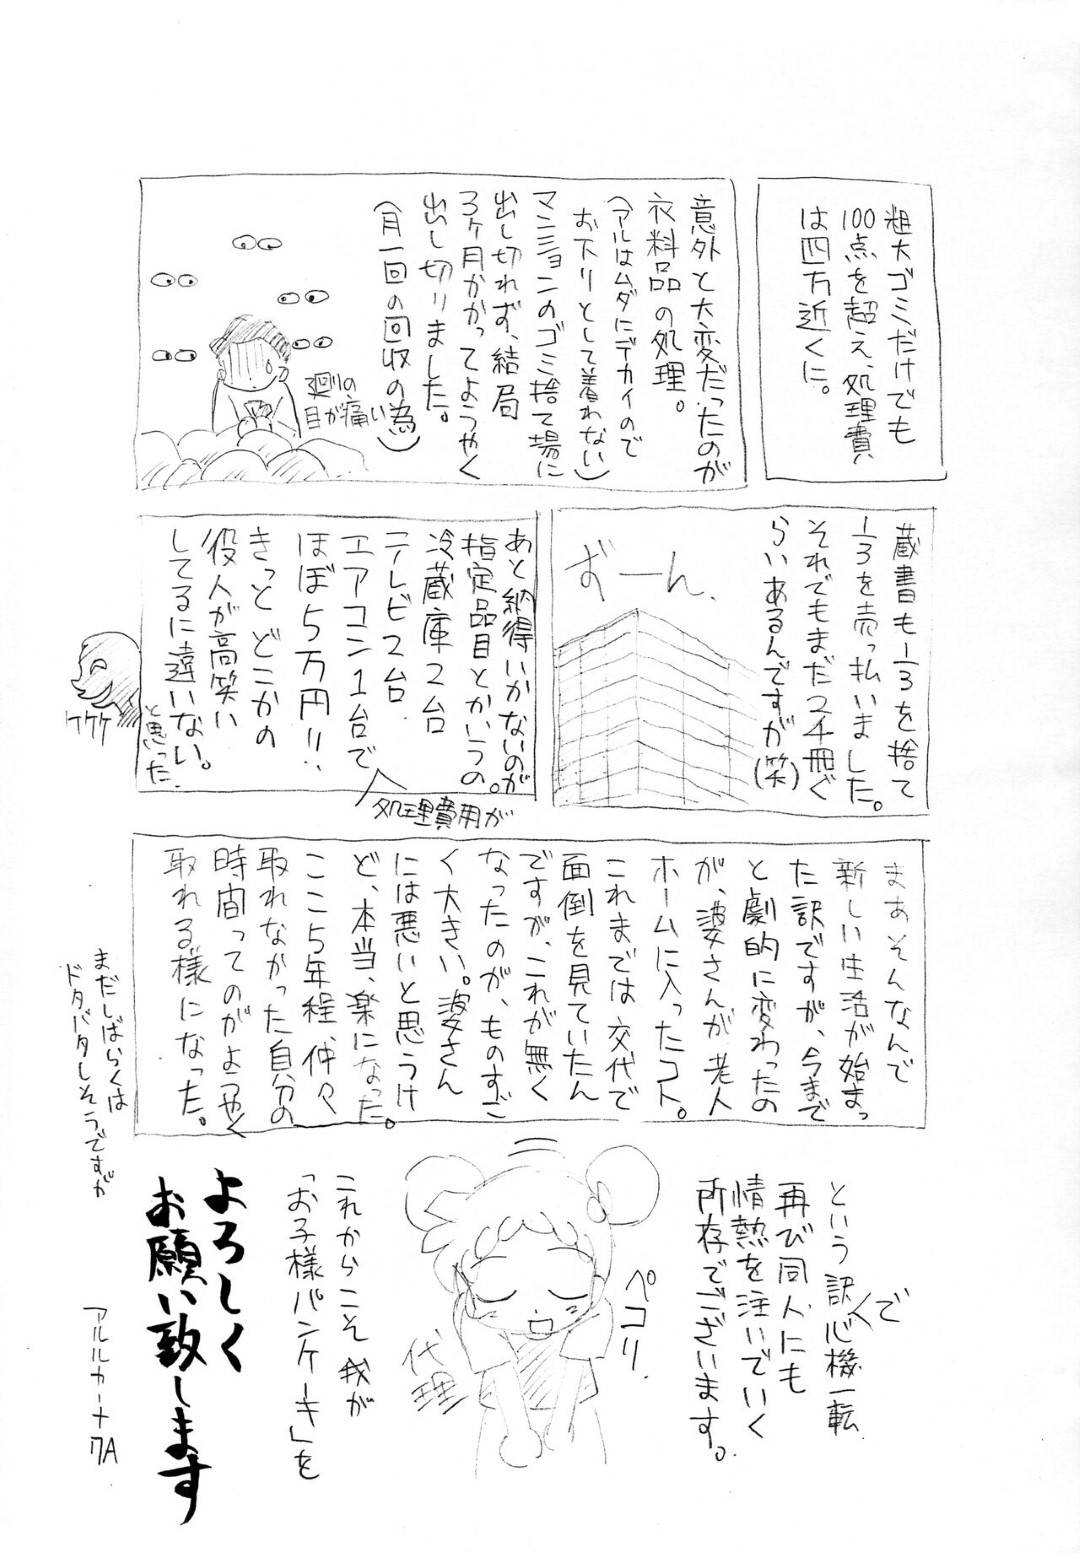 粗大ゴミだけでも
100点を超え、処理費
は四万近くに。
意外と大変だったのが
衣料品の処理。
(アルはムダにデカイので
お下リとして着れない)
マンションのゴミ捨て場に
出し切れず、結局
3ヶ月かかってようやく
出し切りました。
(月一回の回収の為)
廻りの
目が痛い
蔵書も1/3を捨て
1/3を売っ払いました。
それでもまだ2千冊ぐ
らいあるんですが(笑)
ずーん、
あと納得いかないのが
指定品目とかいうの。
冷蔵庫2台
テレビ2台
エアコン1台で
処理費用が
ほぼ5万円!!
きっとどこかの
役人が高笑い
してるに違いない。
と思った
ケケケ
まぁそんなんで
新しい生活が始まっ
た訳ですが、今まで
と劇的に変わったの
が、婆さんが老人
ホームに入ったコト。
これまでは交代で
面倒を見ていたん
ですが、これが無く
なったのが、ものすご
く大きい。婆さん
には悪いと思うけ
ど、本当、楽になった。
ここ5年程、仲々
取れなかった自分の
時間ってのがようやく
取れる様になった。
まだしばらくは
ドタバタしそうですが
という訳で
心機一転
再び同人にも
情熱を注いでいく
所存でございます。
ペコリ
代理
これからこそ我が
「お子様パンケーキ」を
よろしく
お願い致します
アルルカーナ7A